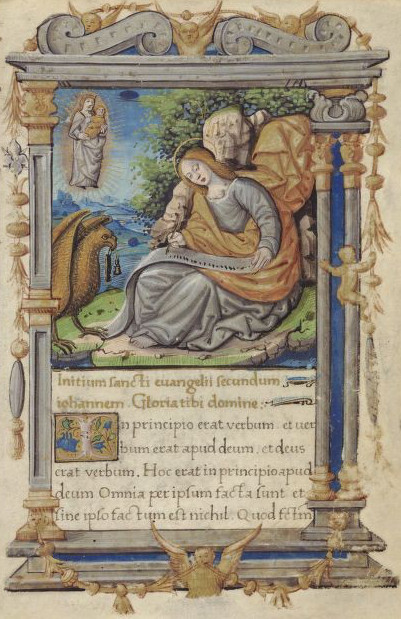 Initium sancti euangelii secundum
iohannem. Gloria tibi domine.
In principio erat verbum. et ver
bum erat apud deum. et deus
erat verbum. Hoc erat in principio apud
deum Omnia per ipsum facta sunt et
sine ipso factum est nichil. Quod